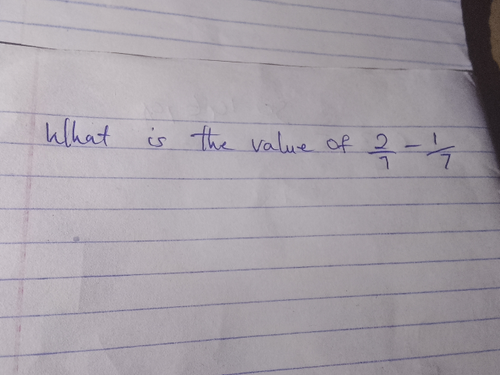 What is the value of 2/7 - 1/7